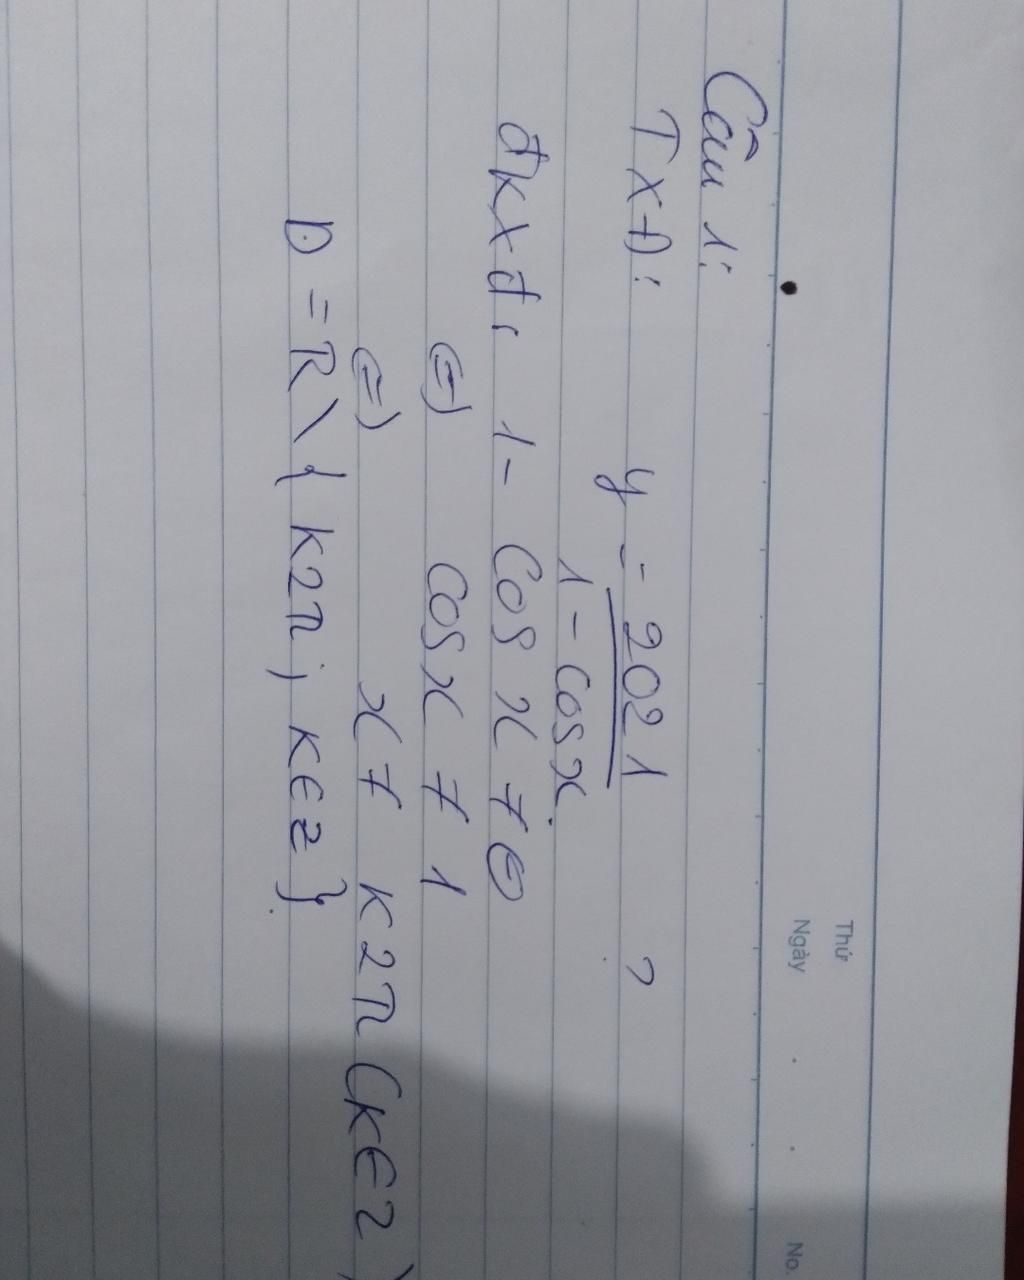 Thứ
Ngày No.
Câu 1:
TXĐ: y = 2021 ?
1 - cosx.
đkxđ: 1 - cos x ≠ 0
(=) cosx ≠ 1
(=) x ≠ k2π (k∈Z)
D = R \ { k2π; k∈Z }